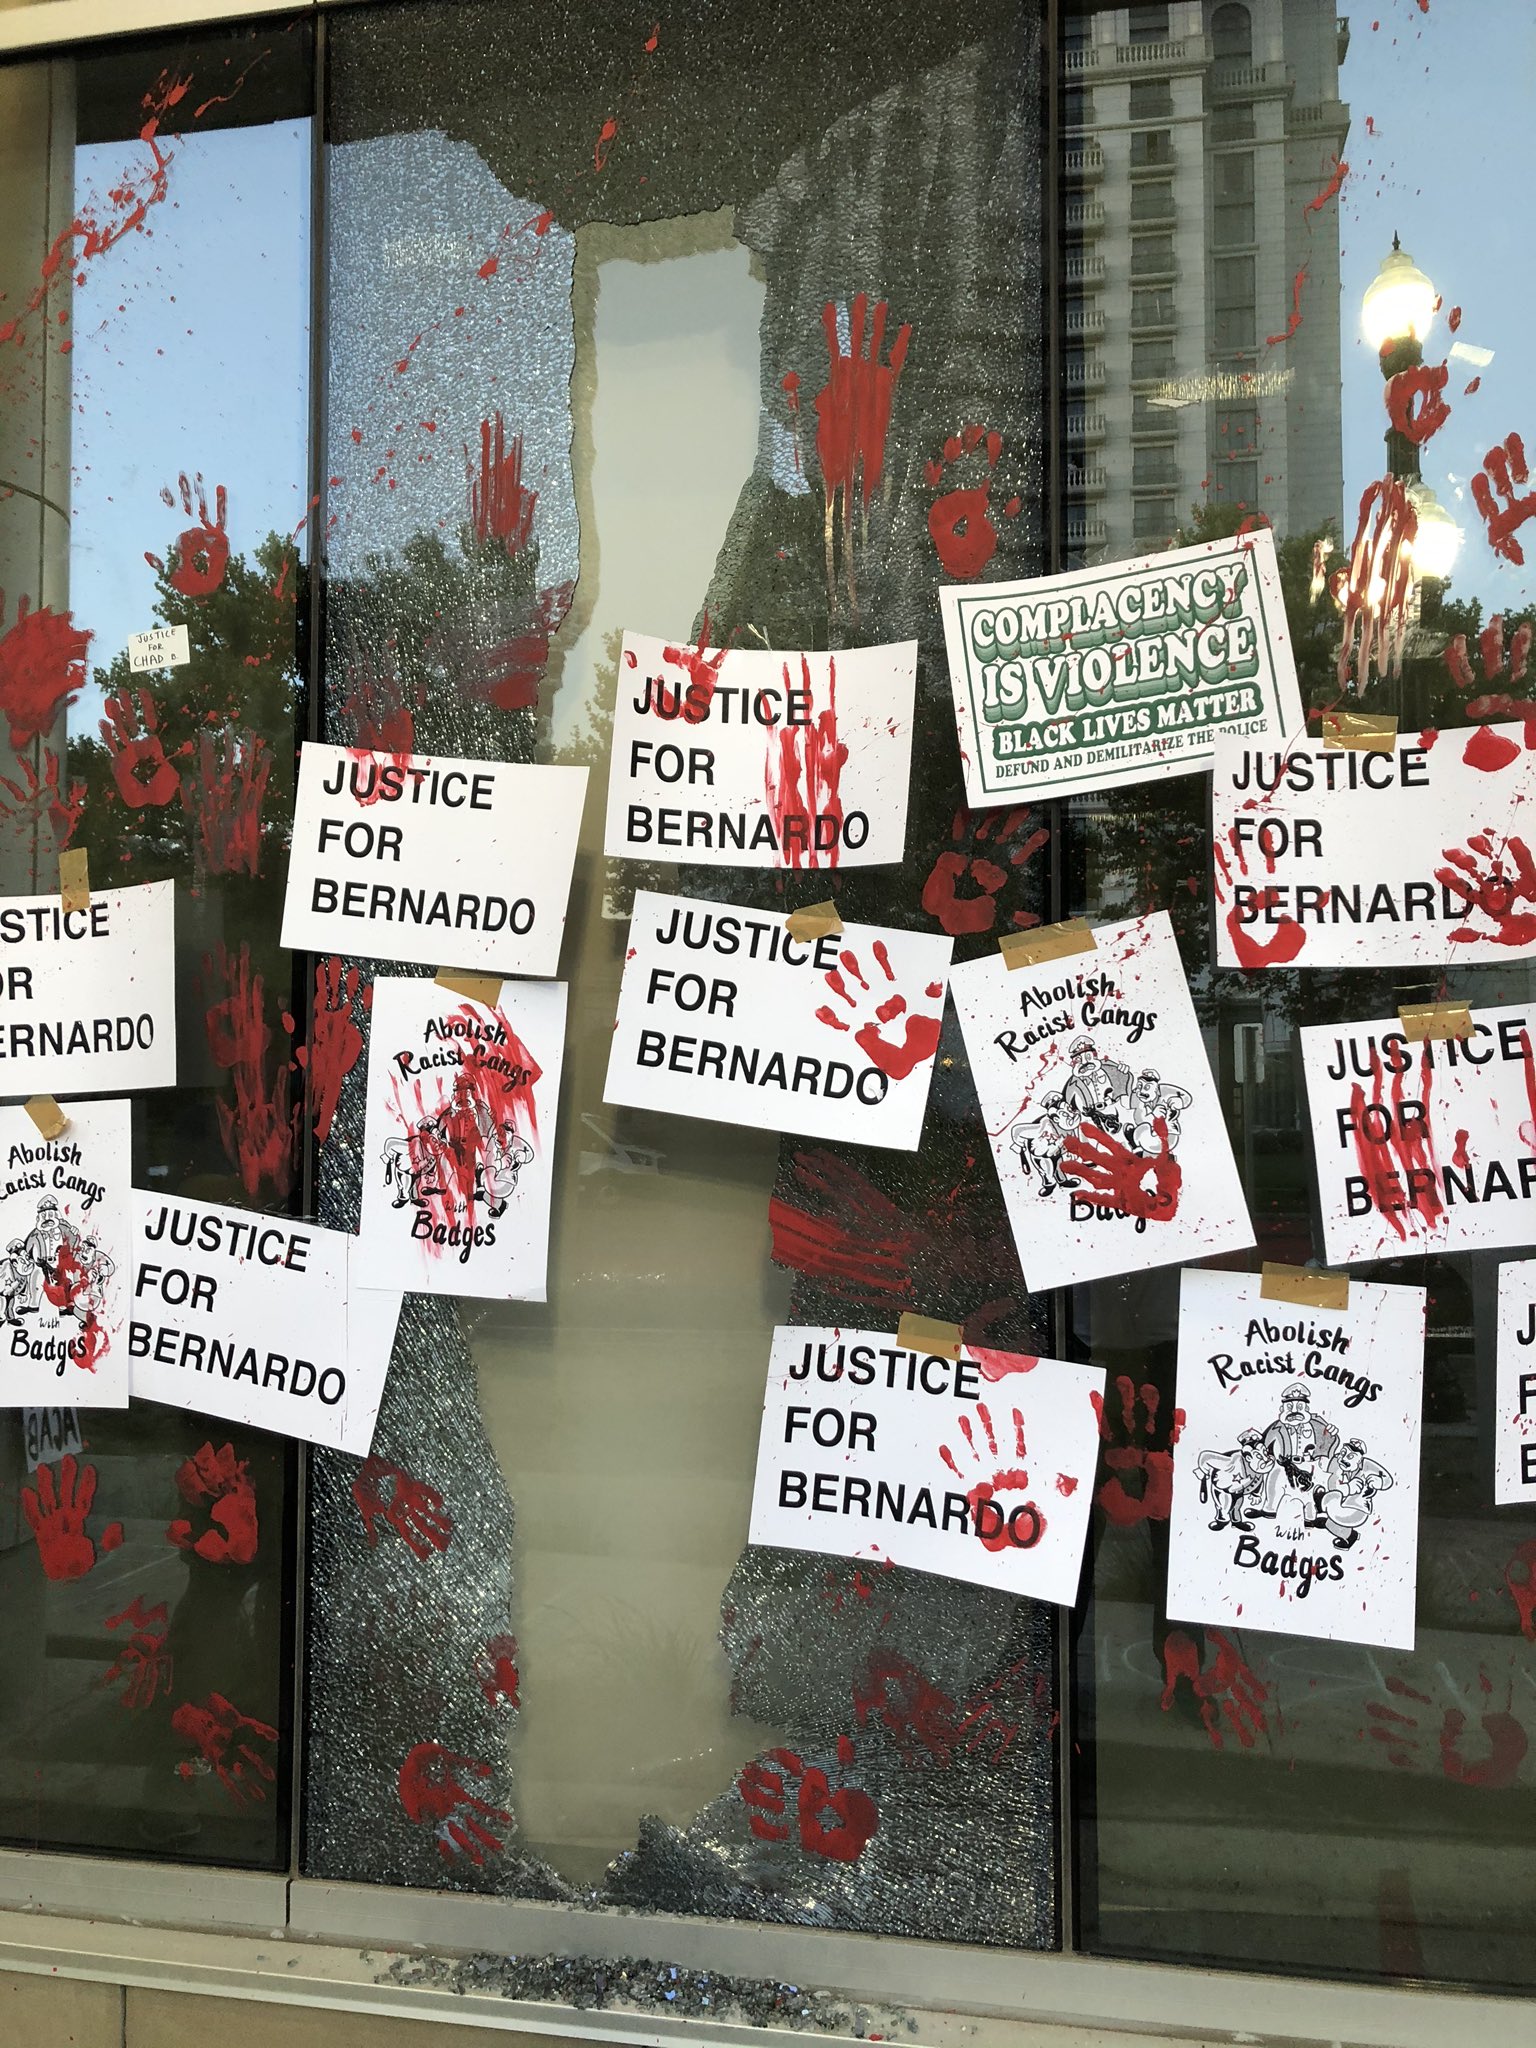 JUSTICE
FOR
CHAD B.
COMPLACENCY
IS VIOLENCE
BLACK LIVES MATTER
DEFUND AND DEMILITARIZE THE POLICE
JUSTICE
FOR
BERNARDO
JUSTICE
FOR
BERNARDO
JUSTICE
FOR
BERNARDO
STICE
OR
ERNARDO
JUSTICE
FOR
BERNARDO
Abolish
Racist Gangs
with
Badges
Abolish
Racist Gangs
Badges
JUSTICE
FOR
BERNAR
Abolish
Racist Gangs
with
Badges
JUSTICE
FOR
BERNARDO
JUSTICE
FOR
BERNARDO
Abolish
Racist Gangs
with
Badges
J
F
B
ACAB